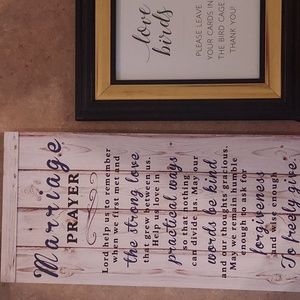 love
birds
PLEASE LEAVE
YOUR CARDS IN
THE BIRD CAGE
THANK YOU!
Marriage
PRAYER
Lord help us to remember
when we first met and
the strong love
that grew between us.
Help us love in
practical ways
so that nothing
can divide us. May our
words be kind
and our thoughts gracious.
May we remain humble
enough to ask for
forgiveness
and wise enough
To freely give.